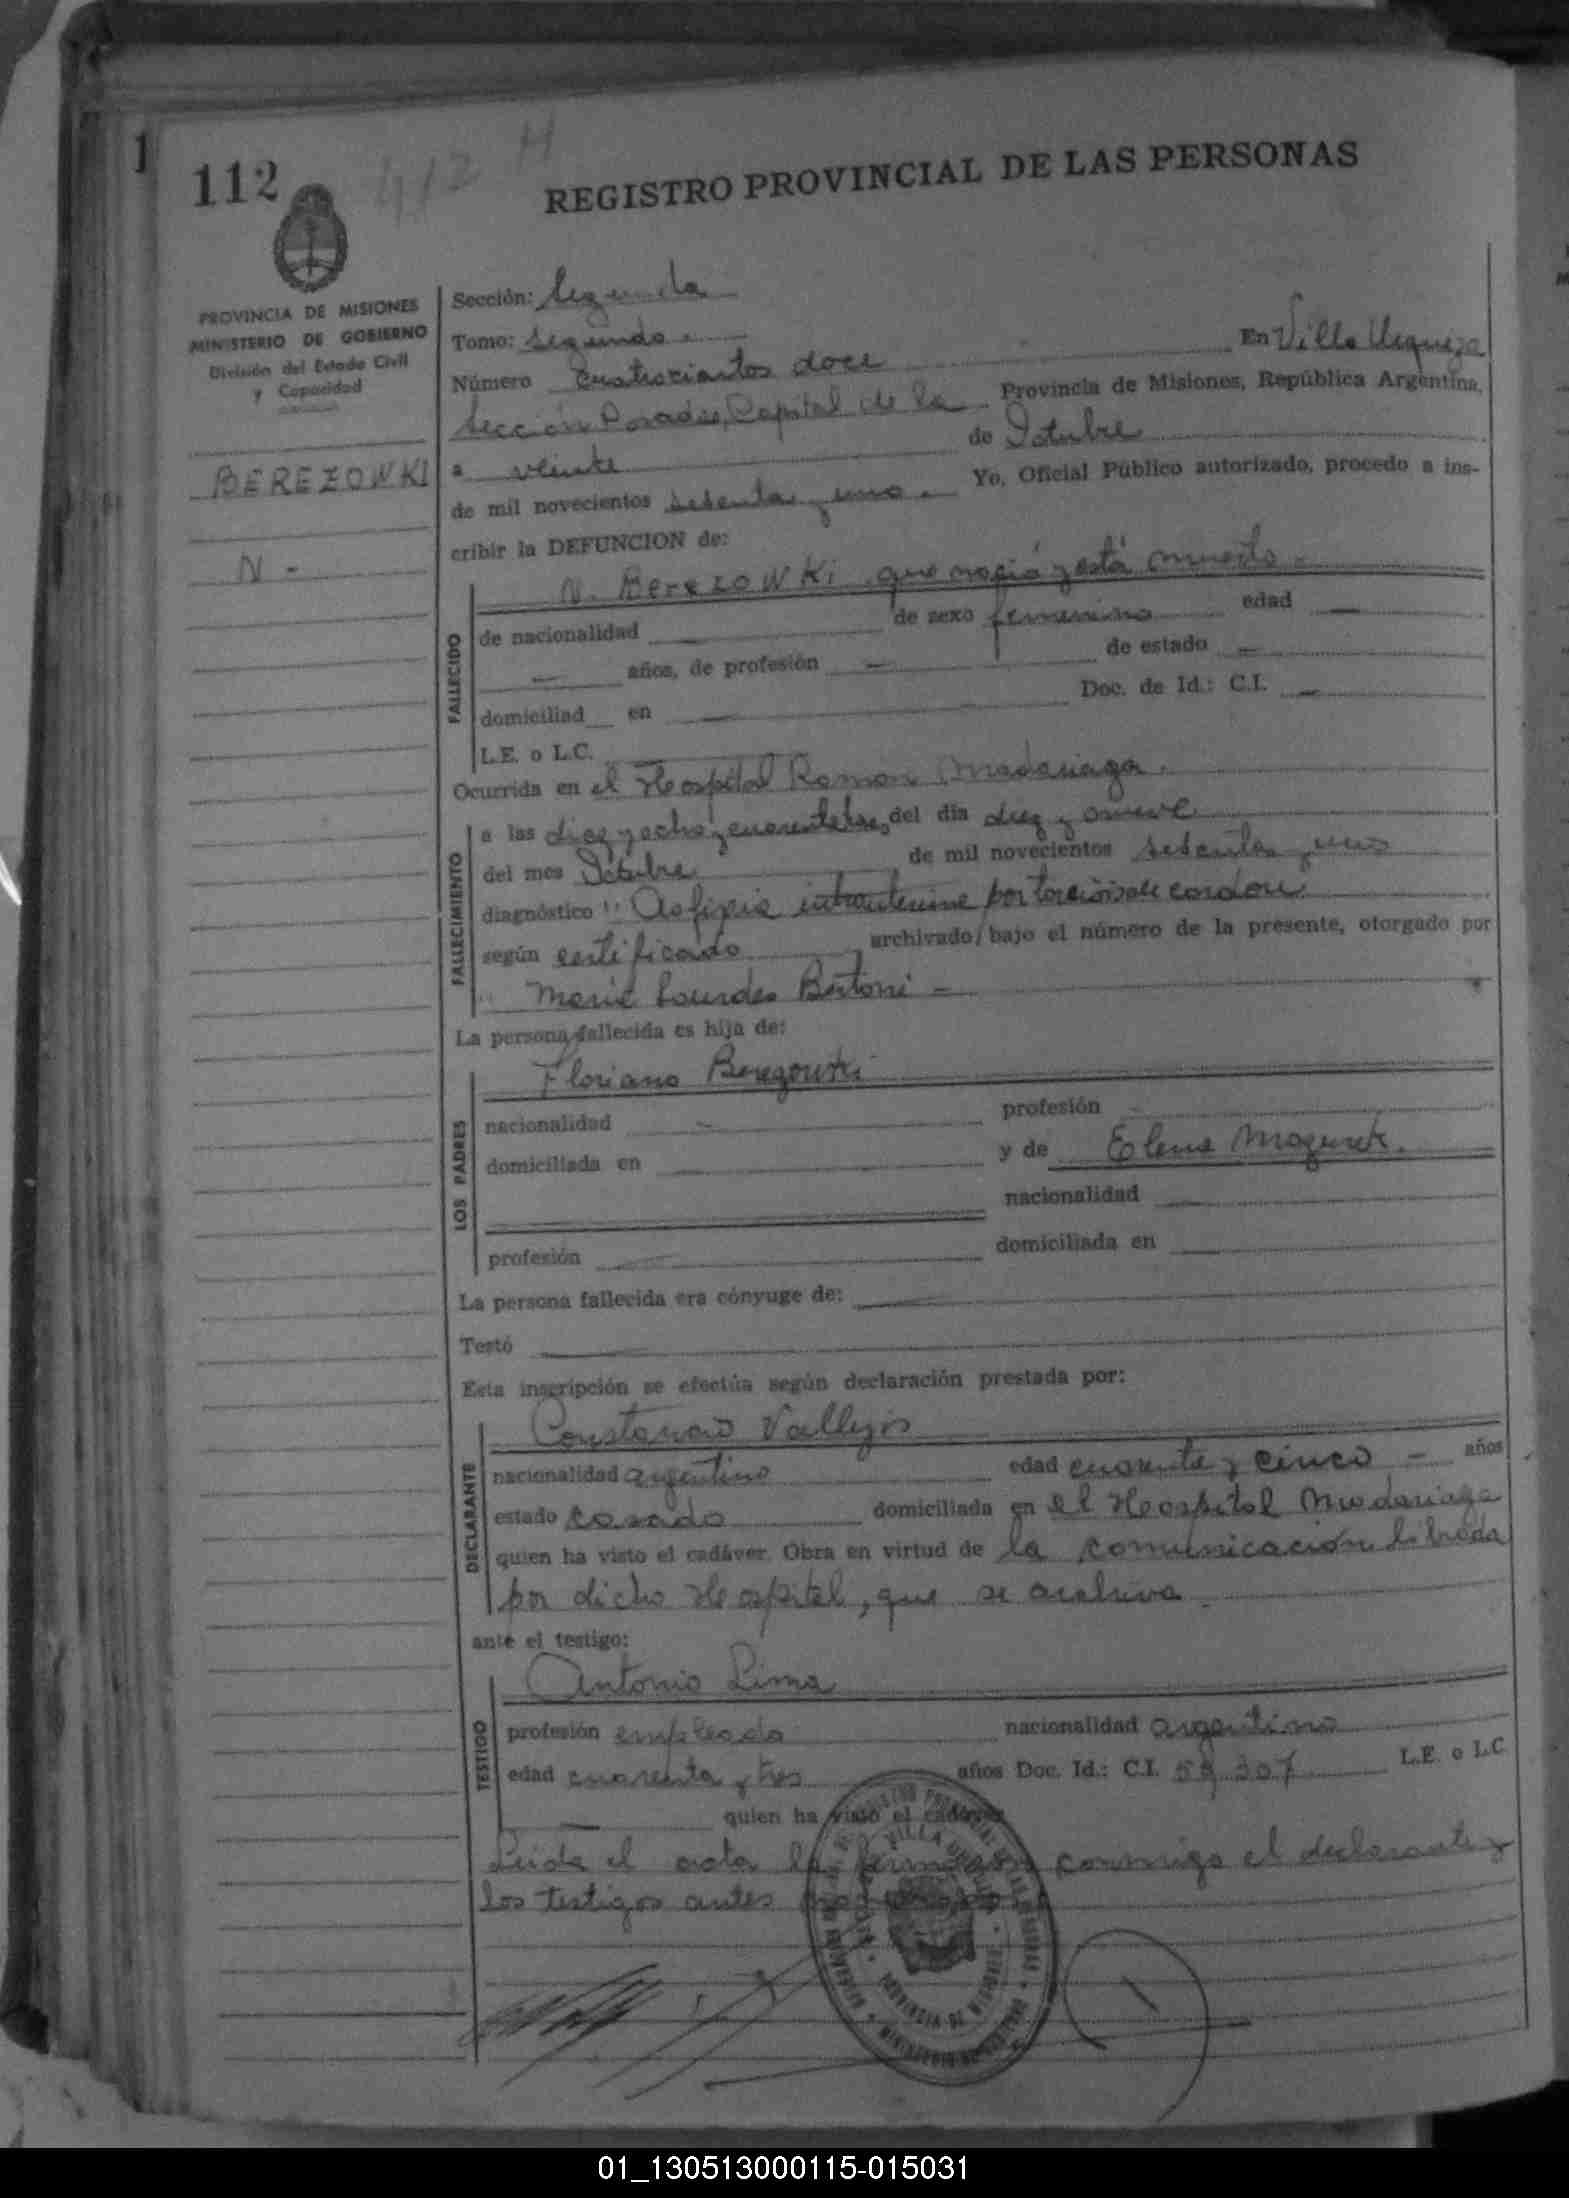 1
112
412 H
REGISTRO PROVINCIAL DE LAS PERSONAS
PROVINCIA DE MISIONES
MINISTERIO DE GOBIERNO
División del Estado Civil
y Capacidad
BEREZOWKI
N -
Sección: Segunda
Tomo: segundo.
Número cuatrocientos doce En Villa Urquiza
Sección Posadas, Capital de la Provincia de Misiones, República Argentina,
a veinte de Octubre
de mil novecientos setenta y uno. Yo, Oficial Público autorizado, procedo a ins-
cribir la DEFUNCION de:
N. BEREZOWKI que nació y está muerto -
FALLECIDO
de nacionalidad — de sexo femenino edad —
— años, de profesión — de estado —
domiciliad en — Doc. de Id.: C.I. —
L.E. o L.C.
Ocurrida en el Hospital Ramon Madariaga.
FALLECIMIENTO
a las diez y ocho y cuarenta hs, del día diez y nueve
del mes Octubre de mil novecientos setenta y uno
diagnóstico " Asfixia intrauterina por torción de cordon.
según certificado archivado bajo el número de la presente, otorgado por
Maria Lourdes Bertoni -
La persona fallecida es hija de:
LOS PADRES
Floriano Berezowki
nacionalidad — profesión -
domiciliada en — y de Elena Mazurek.
nacionalidad —
profesión — domiciliada en —
La persona fallecida era cónyuge de: —
Testó —
Esta inscripción se efectúa según declaración prestada por:
DECLARANTE
Constancio Vallejos
nacionalidad argentino edad cuarenta y cinco - años
estado casado domiciliada en el Hospital Madariaga
quien ha visto el cadáver. Obra en virtud de la comunicación librada
por dicho Hospital, que se archiva.
ante el testigo:
TESTIGO
Antonio Lima
profesión empleado nacionalidad argentino
edad cuarenta y tres años Doc. Id.: C.I. 58.307 L.E. o L.C.
— quien ha visto el cadáver
Leida el acta la firman conmigo el declarante y
los testigos antes
VILLA URQUIZA
PROVINCIA DE MISIONES
01_130513000115-015031